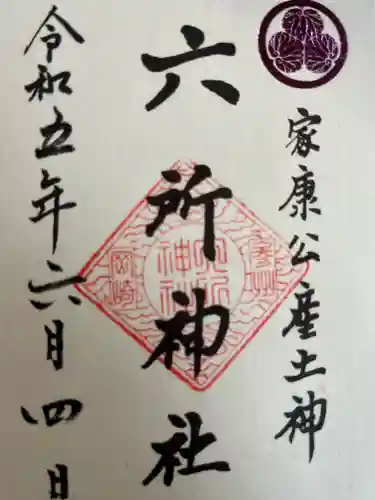 家康公産土神
六所神社
令和五年六月四日
參州
六所神社
岡崎